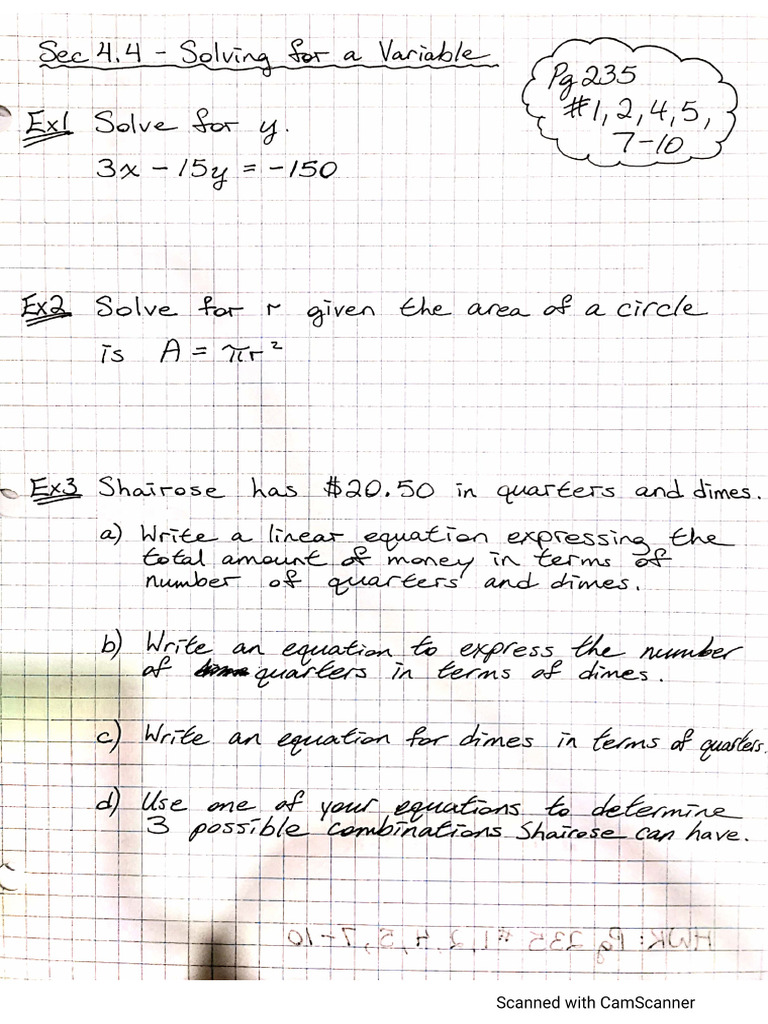 Sec 4.4 - Solving for a Variable
Pg 235
#1, 2, 4, 5,
7-10
Ex1 Solve for y.
3x - 15y = -150
Ex2 Solve for r given the area of a circle
is A = πr²
Ex3 Shairose has $20.50 in quarters and dimes.
a) Write a linear equation expressing the
total amount of money in terms of
number of quarters and dimes.
b) Write an equation to express the number
of quarters in terms of dimes.
c) Write an equation for dimes in terms of quarters.
d) Use one of your equations to determine
3 possible combinations Shairose can have.
HWK: Pg 235 #1, 2, 4, 5, 7-10
Scanned with CamScanner